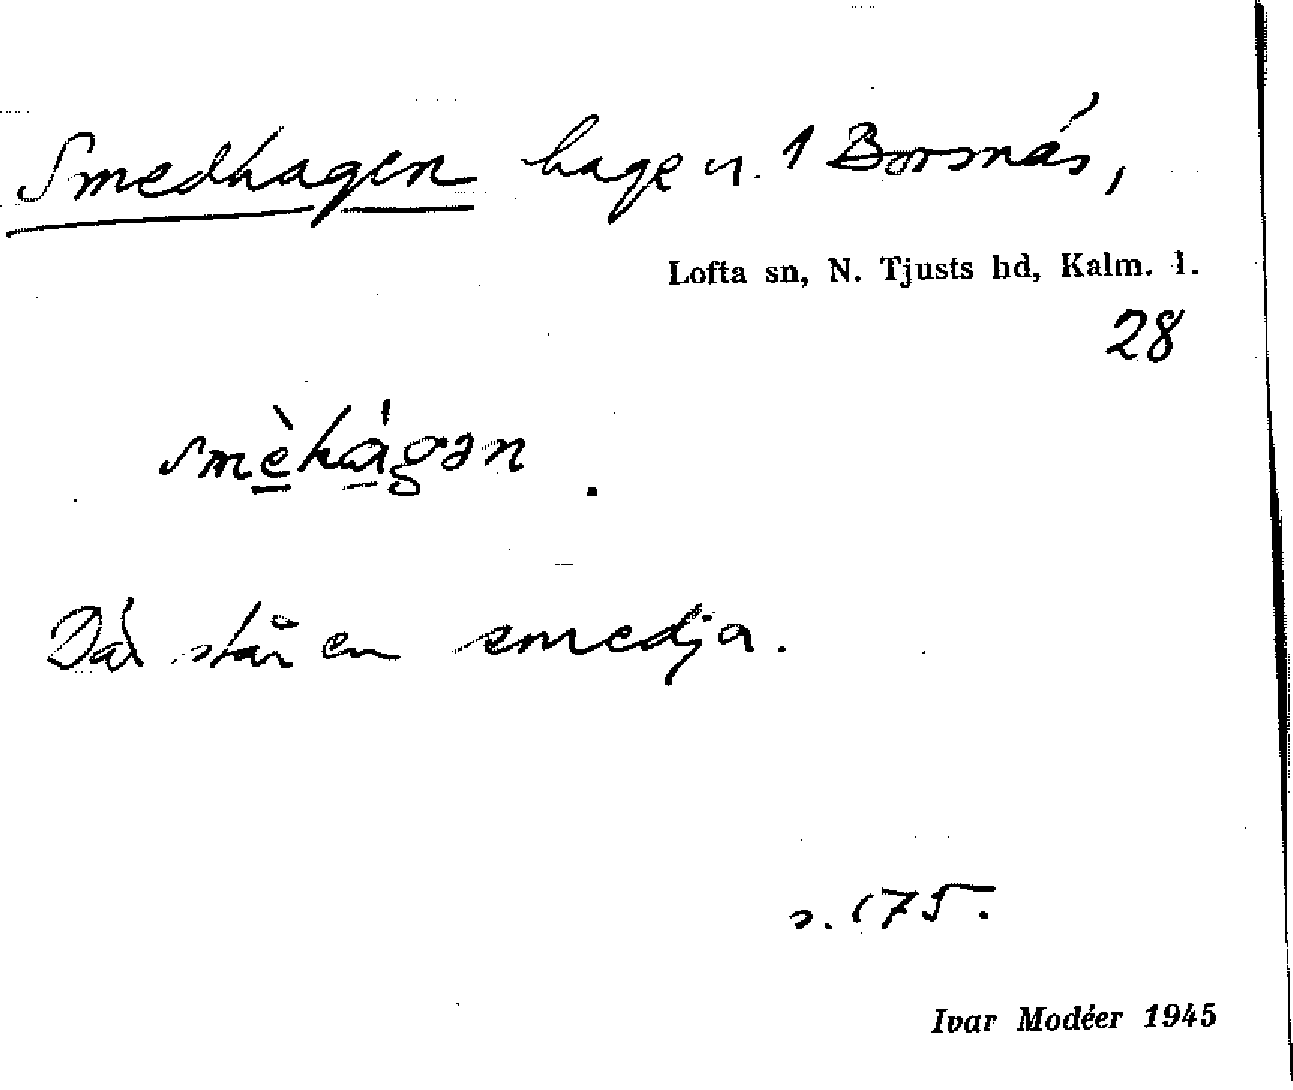 Smedhagen hage u. 1 Borsnäs,
Lofta sn, N. Tjusts hd, Kalm. l.
28
smèhágən.
Där står en smedja.
s. 175.
Ivar Modéer 1945